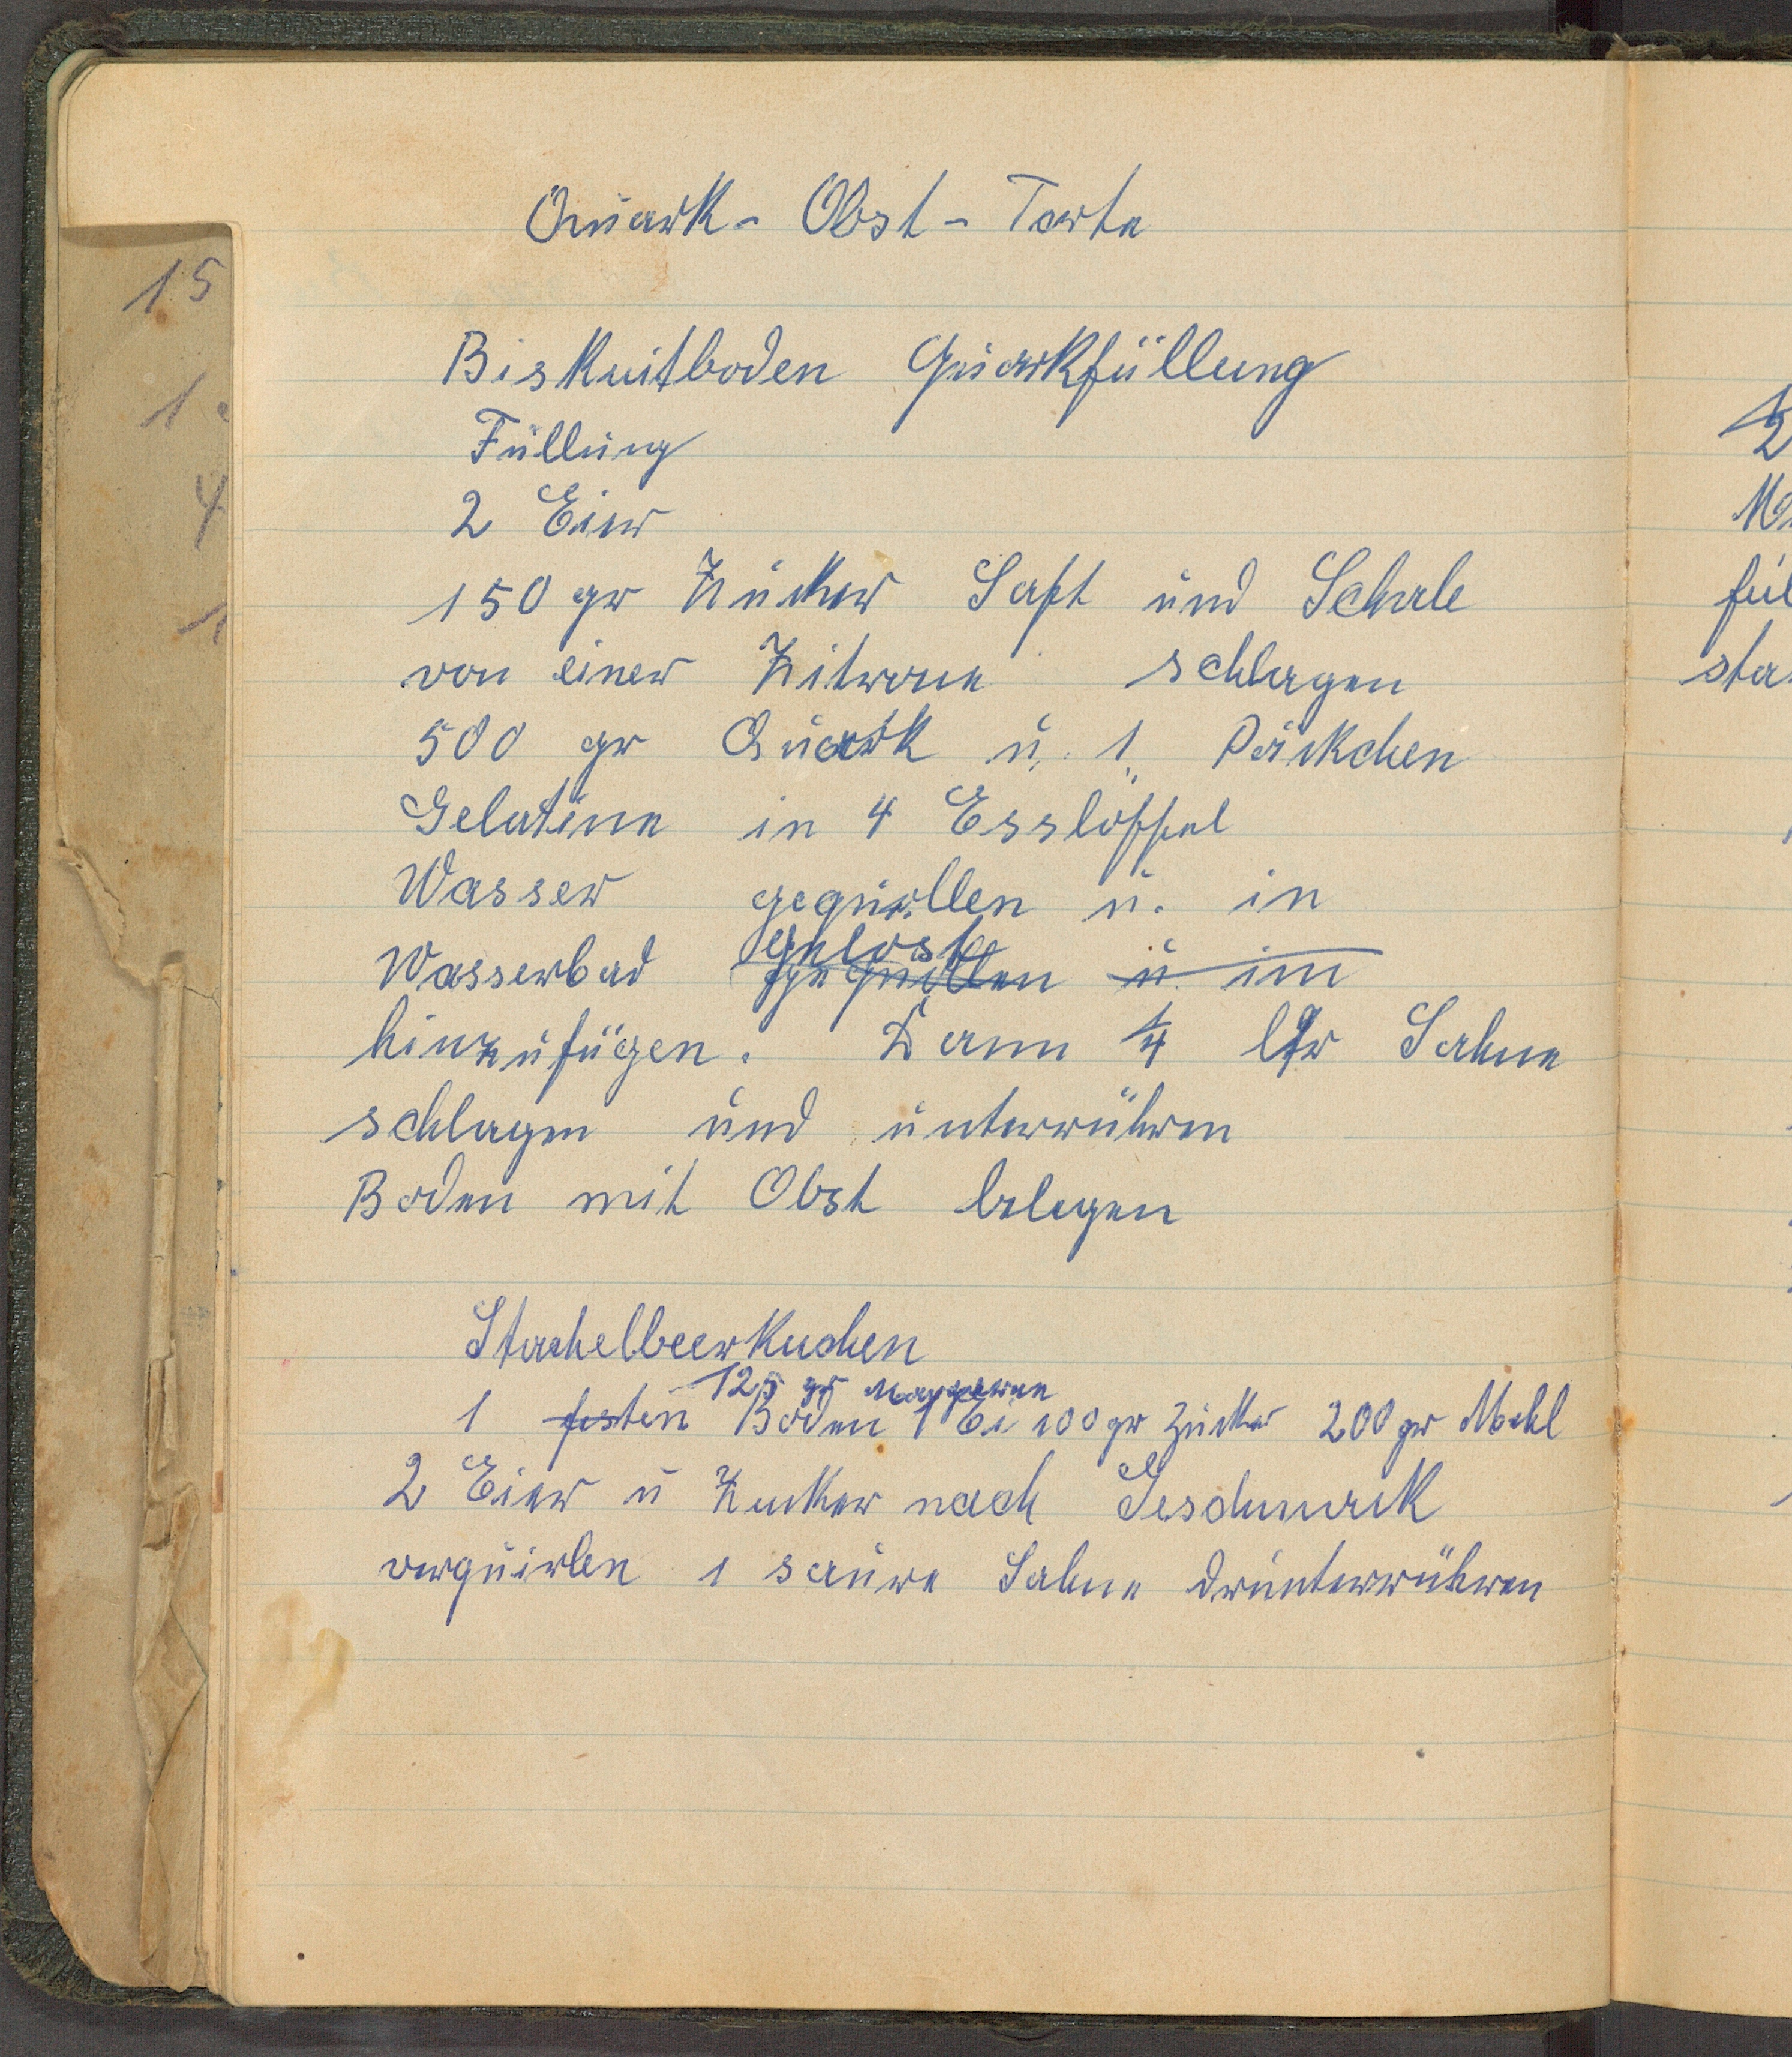 Quark - Obst - Torte
Biskuitboden Quarkfüllung
Füllung
2 Eier
150 gr Zucker Saft und Schale
von einer Zitrone schlagen
500 gr Quark u. 1 Päckchen
Gelatine in 4 Esslöffel
Wasser gequollen u. in
gelöst
Wasserbad gequollen u im
hinzufügen. Dann 1/4 ltr Sahne
schlagen und unterrühren
Boden mit Obst belegen
Stachelbeerkuchen
125 gr Margarine
1 festen Boden 1 Ei 100 gr Zucker 200 gr Mehl
2 Eier u Zucker nach Geschmack
verquirlen 1 saure Sahne drunterrühren
15
1
4
1
1/2
fül